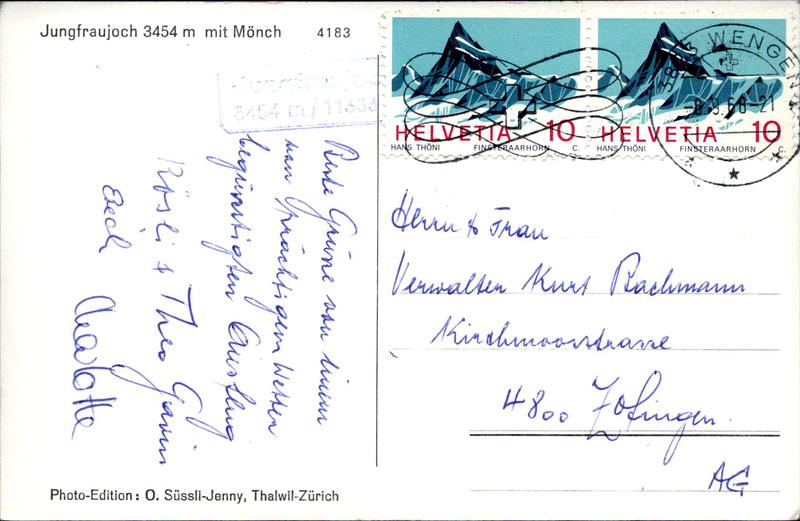 Jungfraujoch 3454 m mit Mönch 4183
Jungfraujoch
3454 m / 11333
HELVETIA 10
HANS THÖNI FINSTERAARHORN C.
HELVETIA 10
HANS THÖNI FINSTERAARHORN C.
WENGEN
Grüsse von einem
von prächtigem Wetter
begünstigten Ausflug
Rösli & Theo
Euch
Herrn & Frau
Verwalter Kurt Bachmann
Kirchmoosstrasse
4800 Zofingen.
AG
Photo-Edition: O. Süssli-Jenny, Thalwil-Zürich